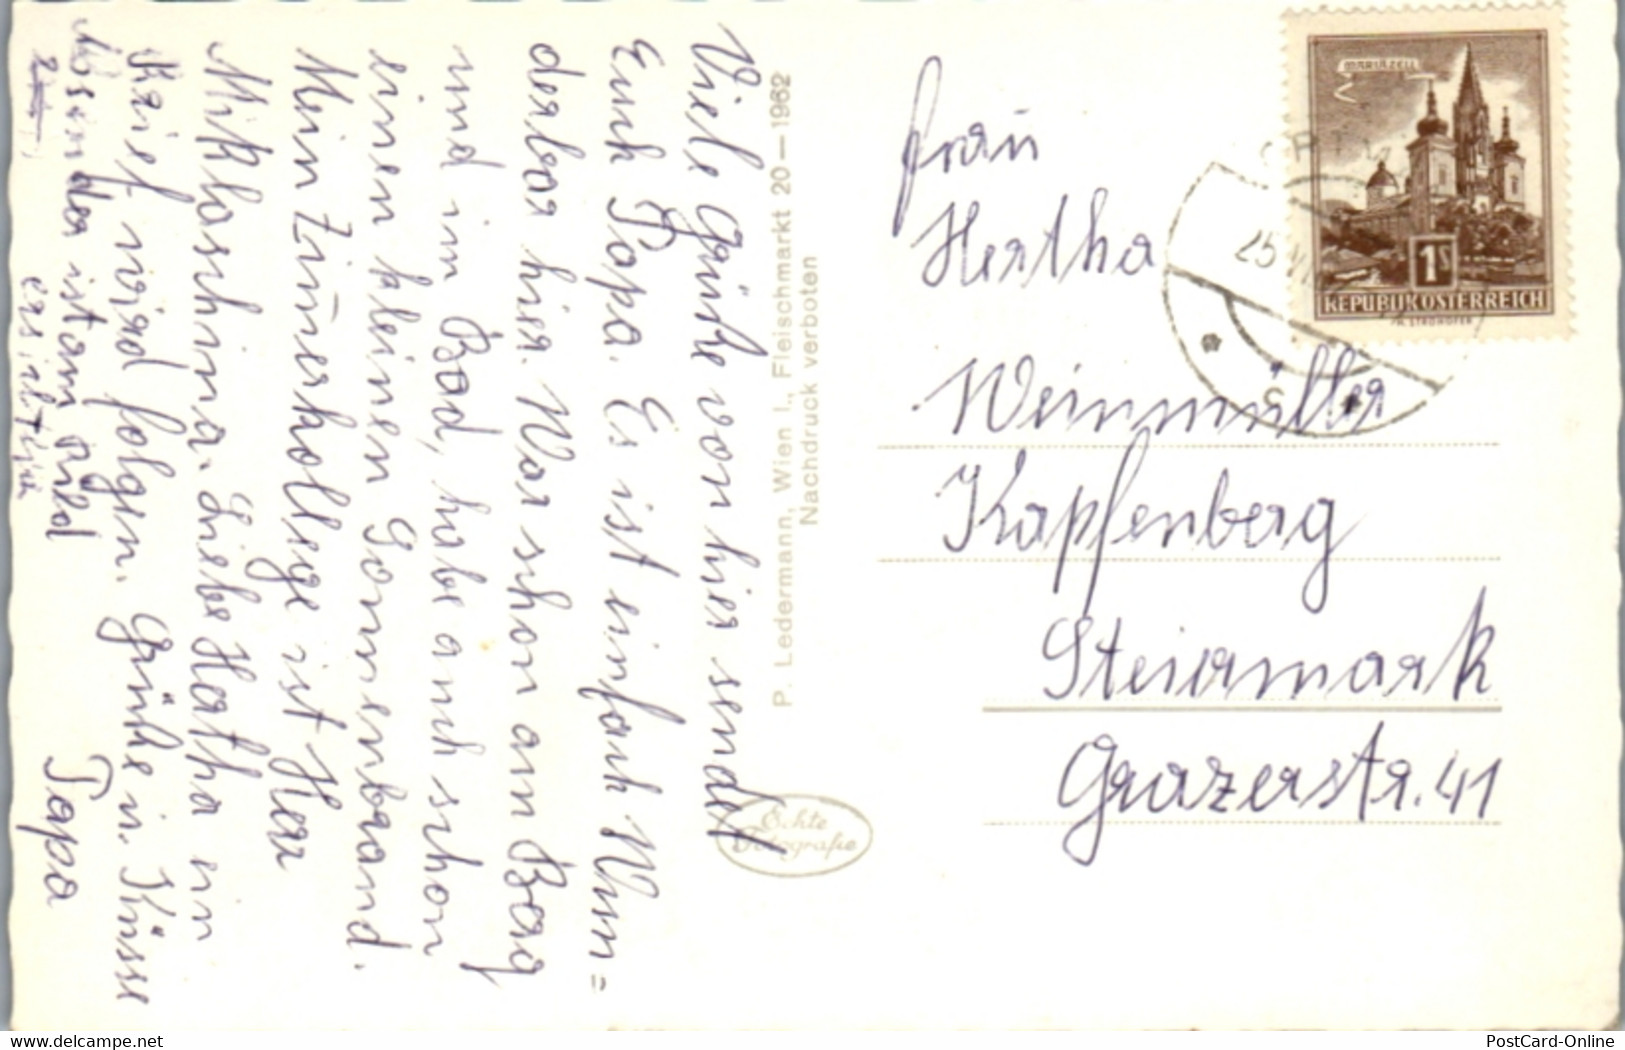 Viele Grüße von hier sendet
Euch Papa. Es ist einfach Wun=
derbar hier. War schon am Berg
und im Bad, habe auch schon
einen kleinen Sonnenbrand.
Mein Zimerkollege ist Herr
Mikloschina. Liebe Hertha ein
Brief wird folgen. Grüße u. Küsse
ist am Bild
ersichtlich
Papa
P. Ledermann, Wien I., Fleischmarkt 20—1962
Nachdruck verboten
Echte
Fotografie
MARIAZELL
1S
REPUBLIK ÖSTERREICH
25.VI
c
Frau
Hertha
Weinmüller
Kapfenberg
Steiermark
Grazerstr. 41
PostCard-Online
www.delcampe.net